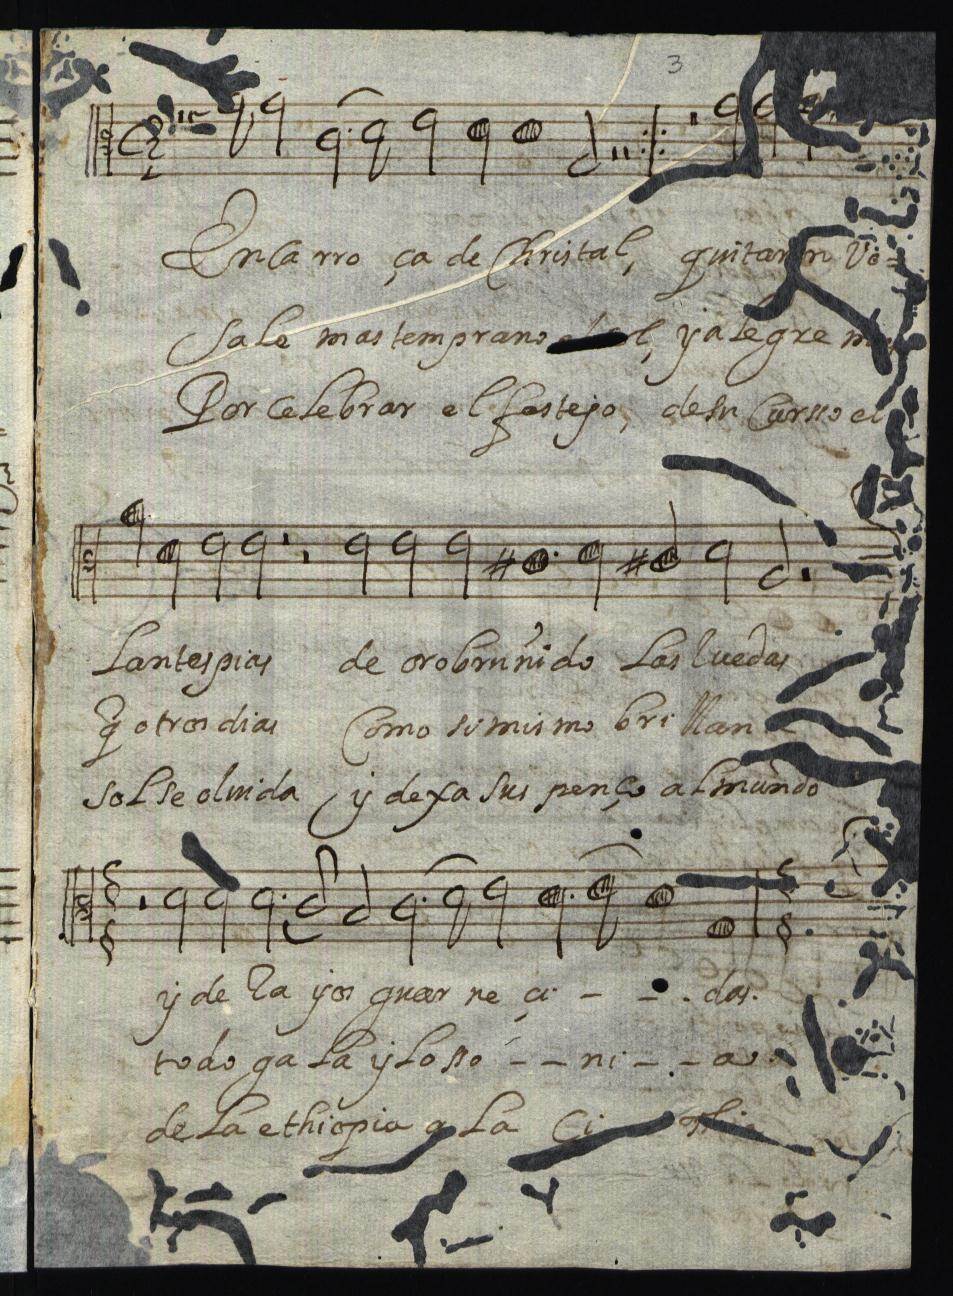 3
En Carro ça de Christal, quitaron Vo=
Sale mas temprano el sol, y alegre
Por Celebrar el festejo, de su Cursso el
Lantespias de oro bruñido Las luedas
q̃ otros dias Como si mismo brillan
sol se olvida y dexa sus penço al mundo
y de Rayos guar ne çi - - . das.
todo gala y Losso - - ni - - a
de La ethiopia a La Ci